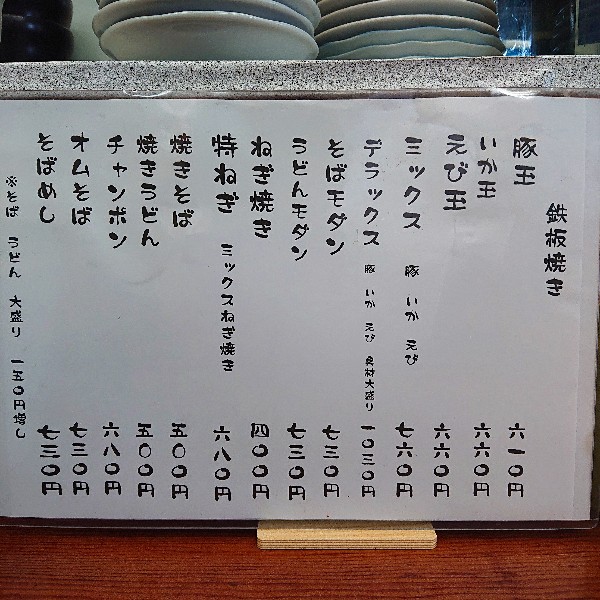 鉄板焼き
豚玉 六一〇円
いか玉 六六〇円
えび玉 六六〇円
ミックス 豚 いか えび 七六〇円
デラックス 豚 いか えび 具材大盛り 一〇三〇円
そばモダン 七三〇円
うどんモダン 七三〇円
ねぎ焼き 四〇〇円
特ねぎ ミックスねぎ焼き 六八〇円
焼きそば 五〇〇円
焼きうどん 五〇〇円
チャンポン 六八〇円
オムそば 七三〇円
そばめし 七三〇円
※そば うどん 大盛り 一五〇円増し